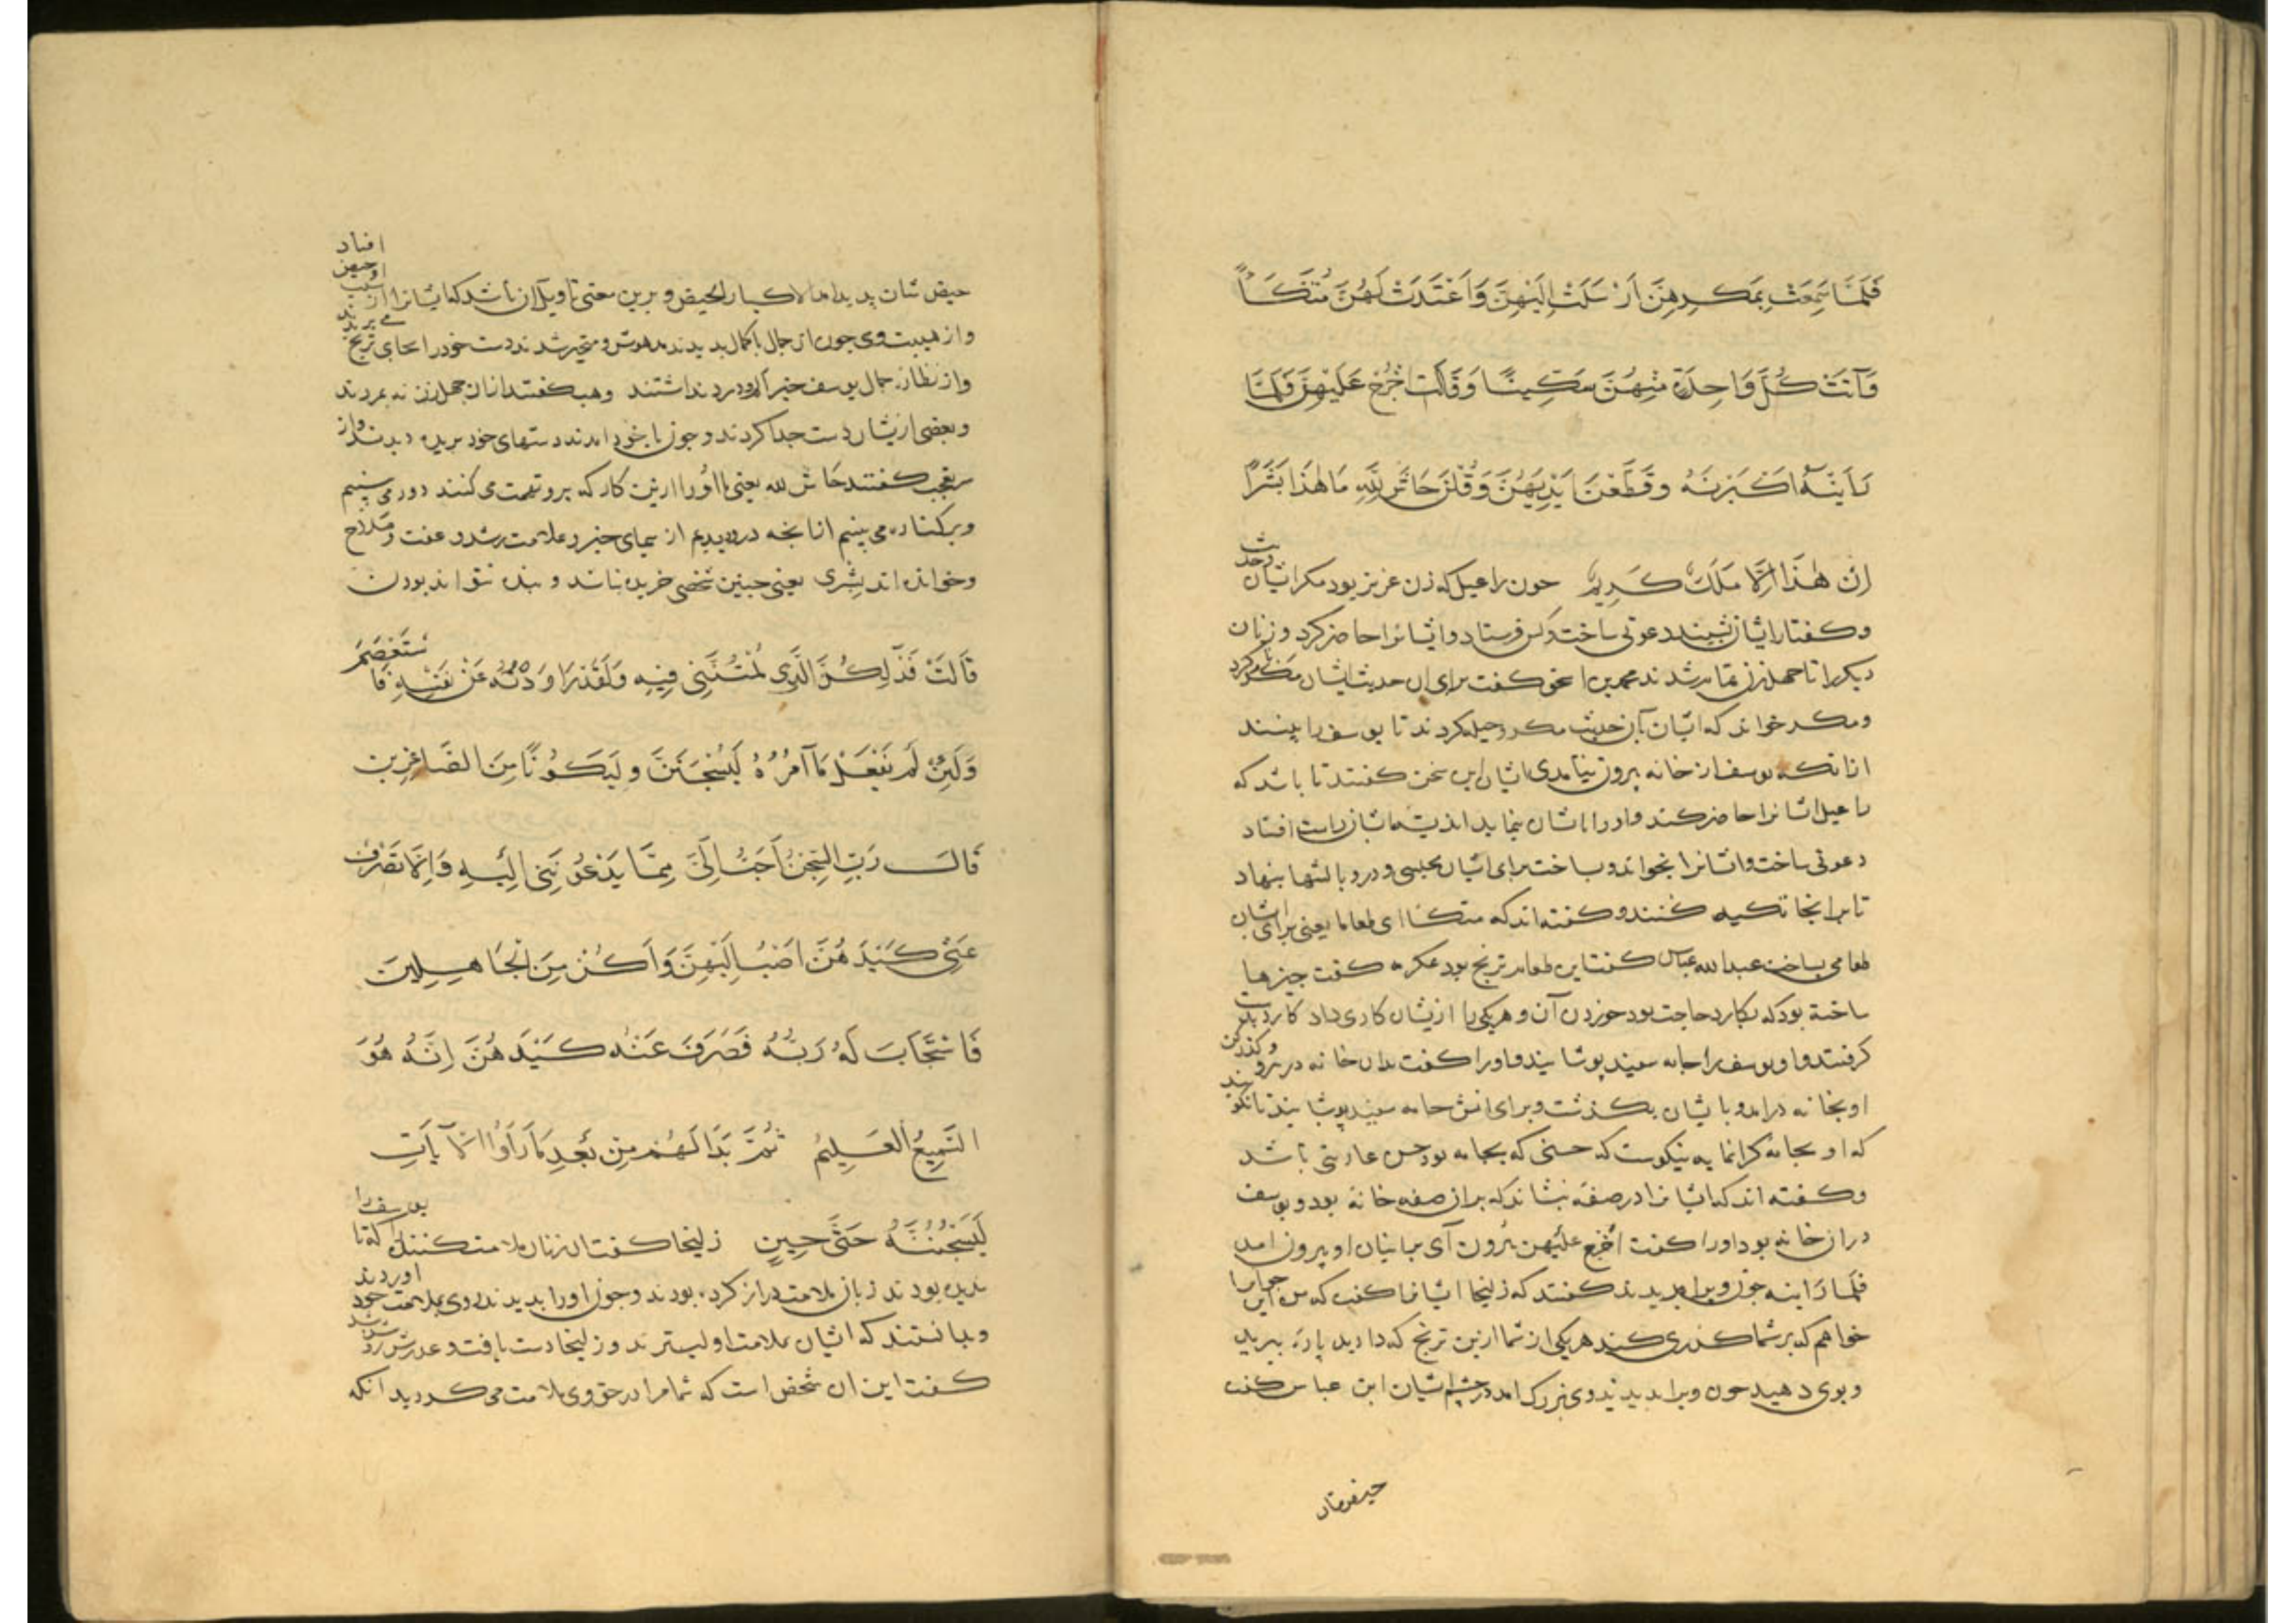 فَلَمَّا سَمِعَتْ بِمَكْرِهِنَّ أَرْسَلَتْ إِلَيْهِنَّ وَأَعْتَدَتْ لَهُنَّ مُتَّكَأً
وَآتَتْ كُلَّ وَاحِدَةٍ مِنْهُنَّ سِكِّينًا وَقَالَتِ اخْرُجْ عَلَيْهِنَّ فَلَمَّا
رَأَيْنَهُ أَكْبَرْنَهُ وَقَطَّعْنَ أَيْدِيَهُنَّ وَقُلْنَ حَاشَ لِلَّهِ مَا هَذَا بَشَرًا
إِنْ هَذَا إِلَّا مَلَكٌ كَرِيمٌ چون راعیل که زن عزیز بود مکر ایشان وحدیث
وکفتار ایشان بشنید دعوتی ساخت وکس فرستاد وایشانرا حاضر کرد وزنان
دیکر را تا چهل زن تمام شدند سخن کفت برای آن حدیث ایشان مکر
ومکر خواند که ایشان بآن حدیث مکر وحیله کردند تا یوسف را ببینند
ازانکه یوسف از خانه بیرون نیامدی ایشان این سخن کفتند تا باشد که
راعیل ایشانرا حاضر کند واورا بایشان نماید اندیشه ایشان راست افتاد
دعوتی ساخت وایشانرا بخواند وبساخت برای ایشان مجلسی ودرو بالشها بنهاد
تا برانجا تکیه کنند وکفته اند که متکئا ای طعاما یعنی برای ایشان
طعامی بساخت عبدالله عباس کفت این طعام ترنج بود عکرمه کفت چیزها
ساخته بود که بکارد حاجت بود خوردن آن وهریکی را ازیشان کاردی داد کارد بدست
کرفتند واو یوسف را جامه سفید پوشانید واورا کفت بدان خانه در رو وکذر کن
او بخانه درامد وبایشان بکذشت وبرای آنش جامه سفید پوشانید تا نکویند
که او بجامه کرانمایه نیکوست که حسنی که بجامه بود حسن عاریتی باشد
وکفته اند که ایشانرا در صفه بنشاند که بران صفه خانه بود ویوسف
دران خانه بود اورا کفت اخرج علیهن بیرون آی براینان او بیرون امد
فلما راینه چون ویرا بدیدند کفتند که زلیخا ایشانرا کفت که من این جوانرا
خواهم که بر شما کذری کند هریکی از شما ازین ترنج که دارید پاره ببرید
وبوی دهید چون ویرا بدیدند وی بزرک امد در چشم ایشان ابن عباس کفت
حیض شان پدید امد الاکبار الحیض وبرین معنی تاویل آن باشد که ایشانرا از افتاد
واز هیبت وی چون آن جمال باکمال بدیدند مدهوش ومتحیر شدند دست خود را بجای ترنج می بریدند
واز نظاره جمال یوسف خبر آن درد نداشتند وهب کفت ازان چهل زن نه بمردند
وبعضی ازیشان دست جدا کردند وچون باخود امدند دستهای خود بریده دیدند واز
سر تعجب کفتند حاش لله یعنی ما اورا ازین کار که برو تهمت می کنند دور می بینیم
وبرکناره می بینیم ازانچه درو دیدیم از سیمای خیر وعلامت رشد وعفت وصلاح
وخوانده اند بِشِرًى یعنی چنین شخصی خریده نباشد وبنده نتواند بودن
قَالَتْ فَذَلِكُنَّ الَّذِي لُمْتُنَّنِي فِيهِ وَلَقَدْ رَاوَدْتُهُ عَنْ نَفْسِهِ فَاسْتَعْصَمَ
وَلَئِنْ لَمْ يَفْعَلْ مَا آمُرُهُ لَيُسْجَنَنَّ وَلَيَكُونًا مِنَ الصَّاغِرِينَ
قَالَ رَبِّ السِّجْنُ أَحَبُّ إِلَيَّ مِمَّا يَدْعُونَنِي إِلَيْهِ وَإِلَّا تَصْرِفْ
عَنِّي كَيْدَهُنَّ أَصْبُ إِلَيْهِنَّ وَأَكُنْ مِنَ الْجَاهِلِينَ
فَاسْتَجَابَ لَهُ رَبُّهُ فَصَرَفَ عَنْهُ كَيْدَهُنَّ إِنَّهُ هُوَ
السَّمِيعُ الْعَلِيمُ ثُمَّ بَدَا لَهُمْ مِنْ بَعْدِ مَا رَأَوُا الْآيَاتِ
لَيَسْجُنُنَّهُ حَتَّى حِينٍ زلیخا کفت ان زنان ملامت کننده را که تا یوسف را
ندیده بودند زبان ملامت دراز کرده بودند وچون اورا بدیدند روی بملامت خود اوردند
وبدانستند که ایشان بملامت اولیترند وزلیخا دست یافت وعذرش
کفت این ان شخص است که شما مرا در حق وی ملامت می کردید انکه